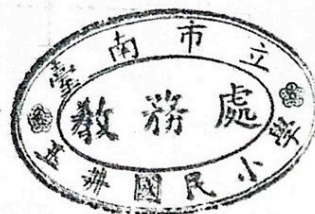 臺南市立
國民小學
教務處